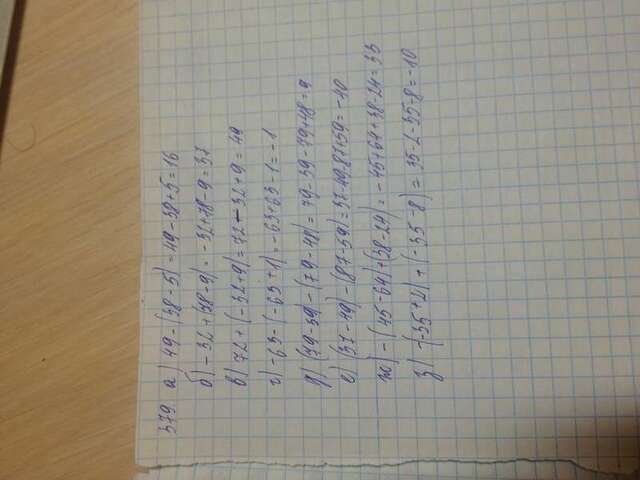 379. а) 49 - (38 - 5) = 49 - 38 + 5 = 16
б) - 32 + (78 - 9) = -32 + 78 - 9 = 37
в) 72 + (-32 + 9) = 72 - 32 + 9 = 49
г) -63 - (-63 + 1) = -63 + 63 - 1 = -1
д) (79 - 39) - (79 - 48) = 79 - 39 - 79 + 48 = 9
е) (37 - 49) - (87 - 59) = 37 - 49 - 87 + 59 = -40
ж) - (45 - 64) + (38 - 24) = - 45 + 64 + 38 - 24 = 33
з) -(-35 + 2) + (-35 - 8) = 35 - 2 - 35 - 8 = -10